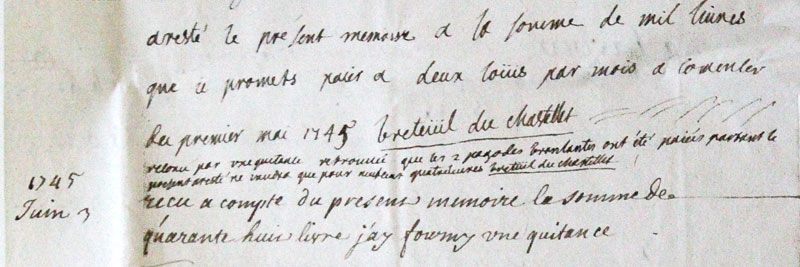 aresté le present memoire a la somme de mil livres
que ie promets paier a deux loüis par mois a comencer
du premier mai 1745 breteüil du Chastellet
reconu par vne quitance retrouuée que les 2 pagodes branlantes ont été paiées partant le
present aresté ne vaudra que pour neufcent quatre livres breteüil du chastellet
1745
Juin 3
recu a compte du present memoire la somme de
quarante huit livre j'ay fourny vne quitance